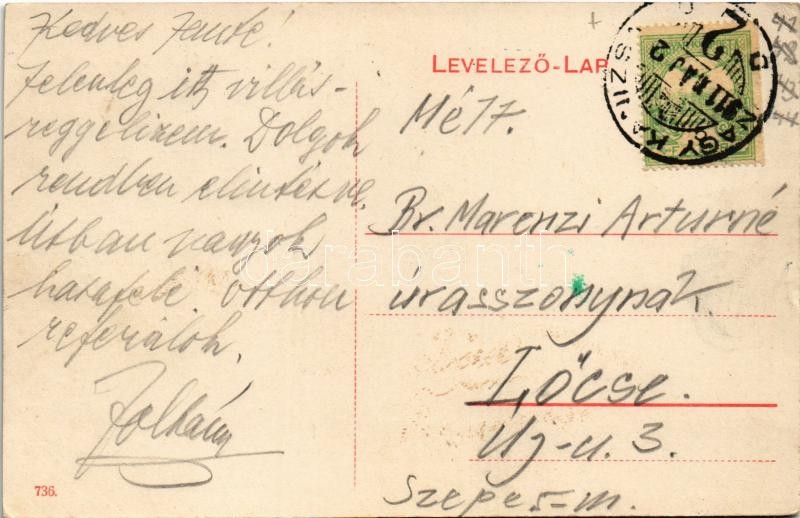 Kedves Jenőé!
Jelenleg itt villás-
reggelizem. Dolgok
rendben elintézve,
útban vagyok
hazafelé otthon
referálok.
Zoltán
736.
LEVELEZŐ-LAP
NAGYKANIZSA
911
Mélt.
Br. Marenzi Arturné
úrasszonynak.
Lőcse.
Uj-u. 3.
Szepes-m.
darabanth